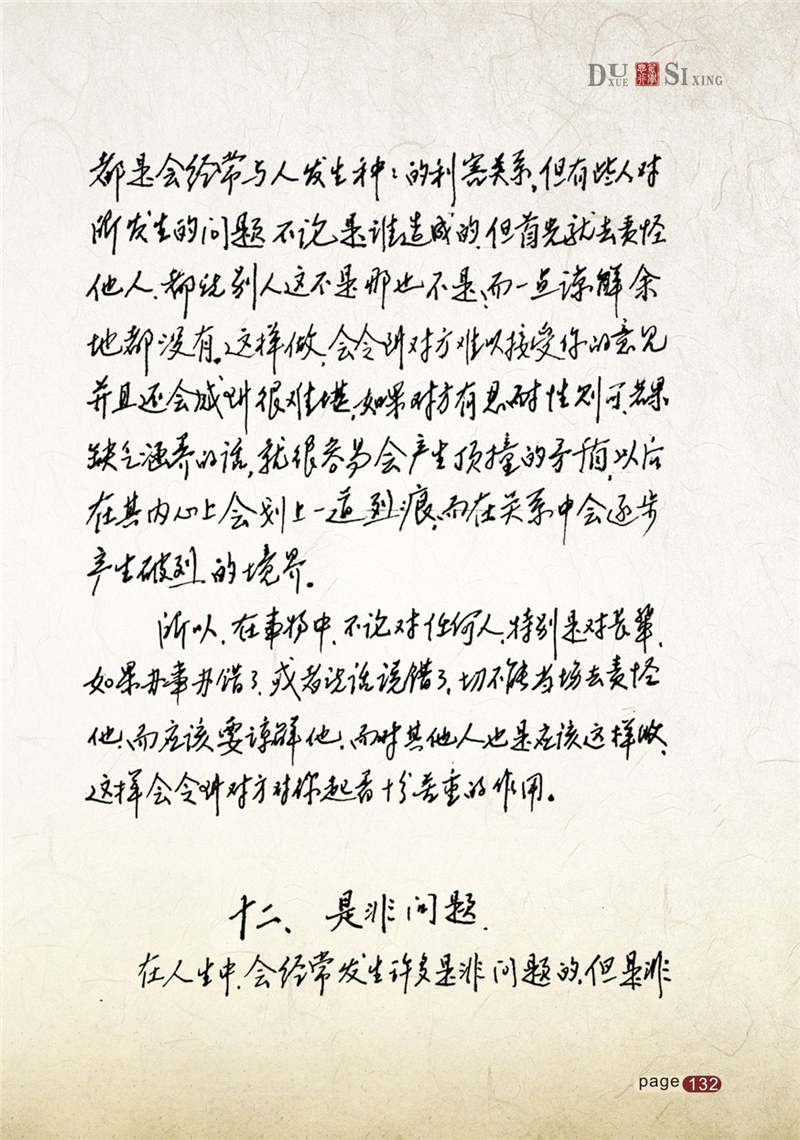 DUXUE SIXING
都是会经常与人发生种々的利害关系,但有些人对
所发生的问题不论是谁造成的,但首先就去责怪
他人、都说别人这不是那也不是,而一点谅解余
地都没有。这样做,会令到对方难以接受你的意见
并且还会感到很难堪,如果对方有忍耐性则可,若果
缺乏涵养的话,就很容易会产生顶撞的矛盾,以后
在其内心上会划上一道列痕,而在关系中会逐步
产生破列的境界。
所以,在事物中,不论对任何人,特别是对长辈,
如果办事办错了,或者说话说错了,切不能当场去责怪
他,而应该要谅解他,而对其他人也是应该这样做,
这样会令到对方对你起着十分善重的作用。
十二、是非问题.
在人生中,会经常发生许多是非问题的,但是非
page 132